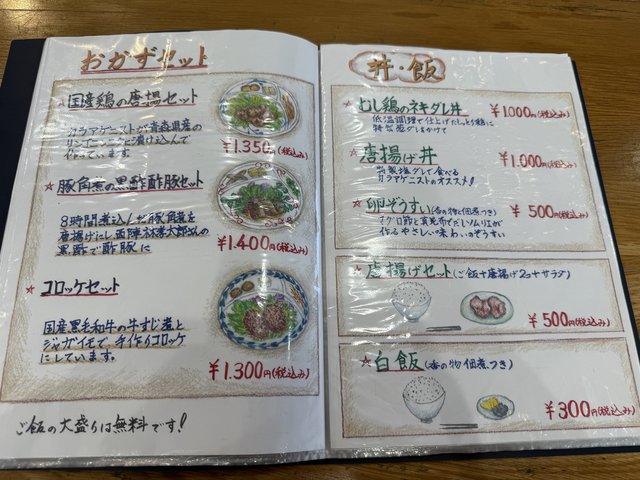 おかずセット
★国産鶏の唐揚セット
カラアゲニストが青森県産の
リンゴとニンニクに漬け込んで
作っています。
¥1.350円(税込み)
★豚角煮の黒酢酢豚セット
8時間煮込んだ豚角煮を
唐揚げにし西陣林孝太郎さんの
黒酢で酢豚に
¥1.400円(税込み)
★コロッケセット
国産黒毛和牛の牛すじ煮と
ジャガイモで、手作りコロッケ
にしています。
¥1.300円(税込み)
ご飯の大盛りは無料です!
丼・飯
むし鶏のネギダレ丼 ¥1,000円(税込み)
低温調理で仕上げたしっとり鶏に
特製葱ダレをかけて
★唐揚げ丼 ¥1,000円(税込み)
特製塩ダレで食べる
カラアゲニストのオススメ!
卵ぞうすい(香の物と佃煮つき) ¥500円(税込み)
マグロ節と真昆布でだし
作るやさしい味わいのぞうすい
★唐揚げセット(ご飯+唐揚げ2コ+サラダ)
¥500円(税込み)
★白飯(香の物佃煮つき)
¥300円(税込み)